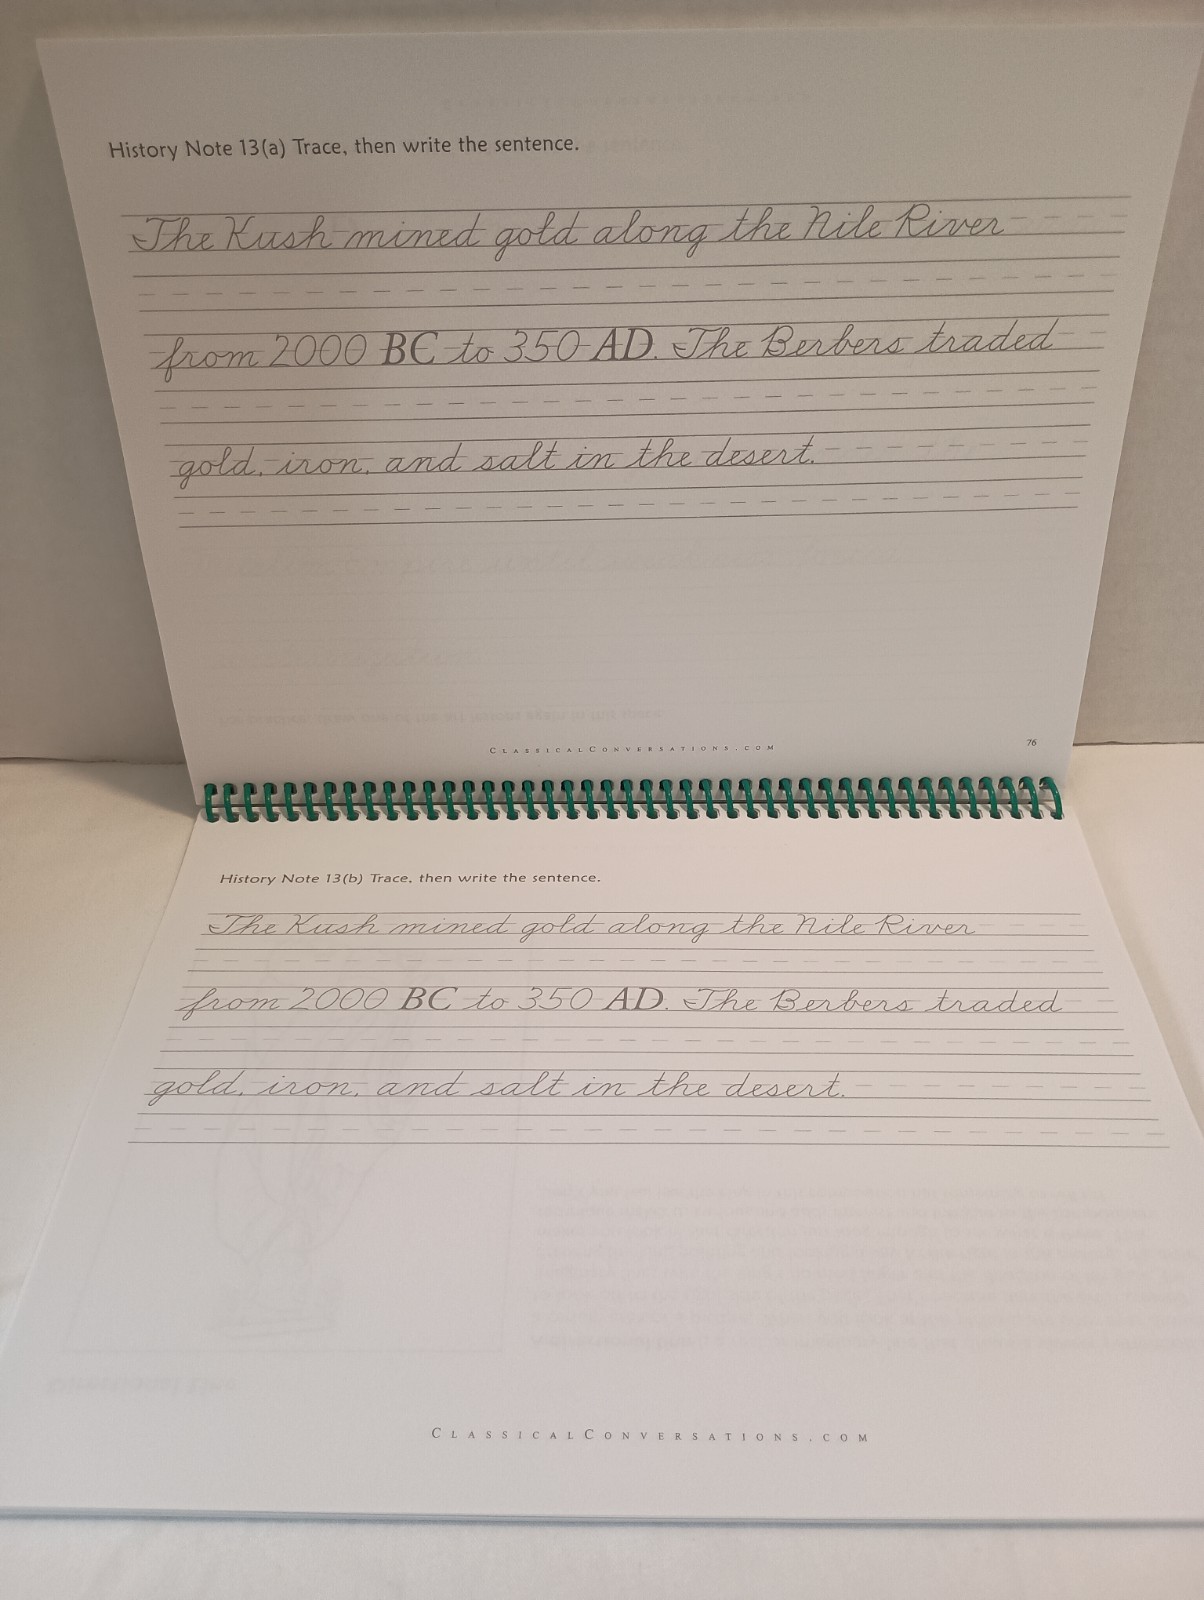 History Note 13(a) Trace, then write the sentence.
The Kush mined gold along the Nile River
from 2000 BC to 350 AD. The Berbers traded
gold, iron, and salt in the desert.
ClassicalConversations.com
76
History Note 13(b) Trace, then write the sentence.
The Kush mined gold along the Nile River
from 2000 BC to 350 AD. The Berbers traded
gold, iron, and salt in the desert.
ClassicalConversations.com